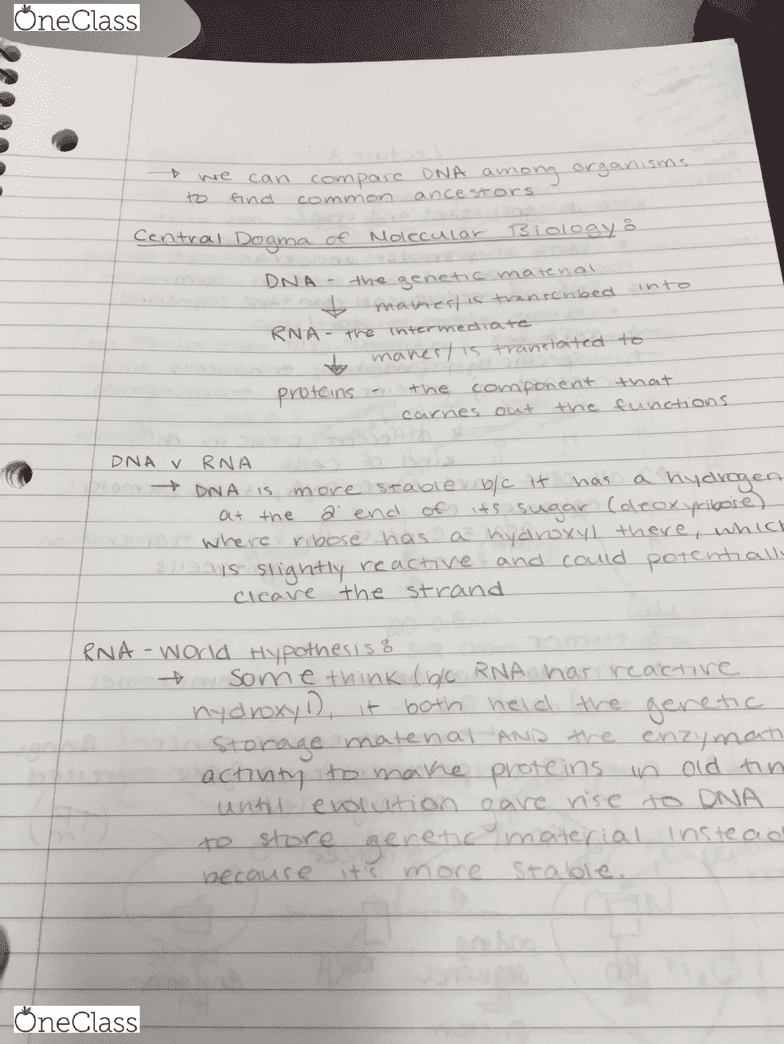 OneClass
→ we can compare DNA among organisms
to find common ancestors
Central Dogma of Molecular Biology:
DNA - the genetic material
↓ makes/is transcribed into
RNA - the intermediate
↓ makes/is translated to
proteins - the component that
carries out the functions
DNA v RNA
→ DNA is more stable b/c it has a hydrogen
at the 2' end of its sugar (deoxyribose)
where ribose has a hydroxyl there, which
is slightly reactive and could potentially
cleave the strand
RNA - World Hypothesis:
→ Some think (b/c RNA has reactive
hydroxyl), it both held the genetic
storage material AND the enzymati
activity to make proteins in old
until evolution gave rise to DNA
to store genetic material instead
because it's more stable.
OneClass